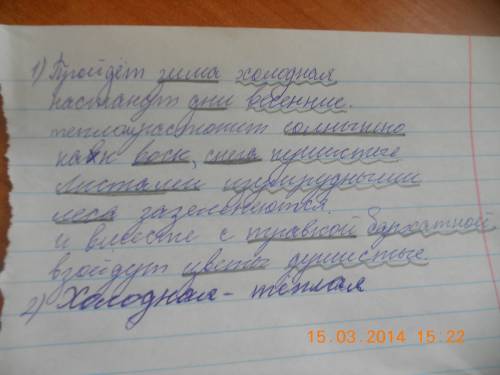 1) Пройдёт зима холодная
настанут дни весенние.
теплом растопит солнышко
как воск, снега пушистые
Листами изумрудными
леса зазеленяются.
и вместе с травкой бархатной
взойдут цветы душистые.
2) Холодная - тёплая
15.03.2014 15:22